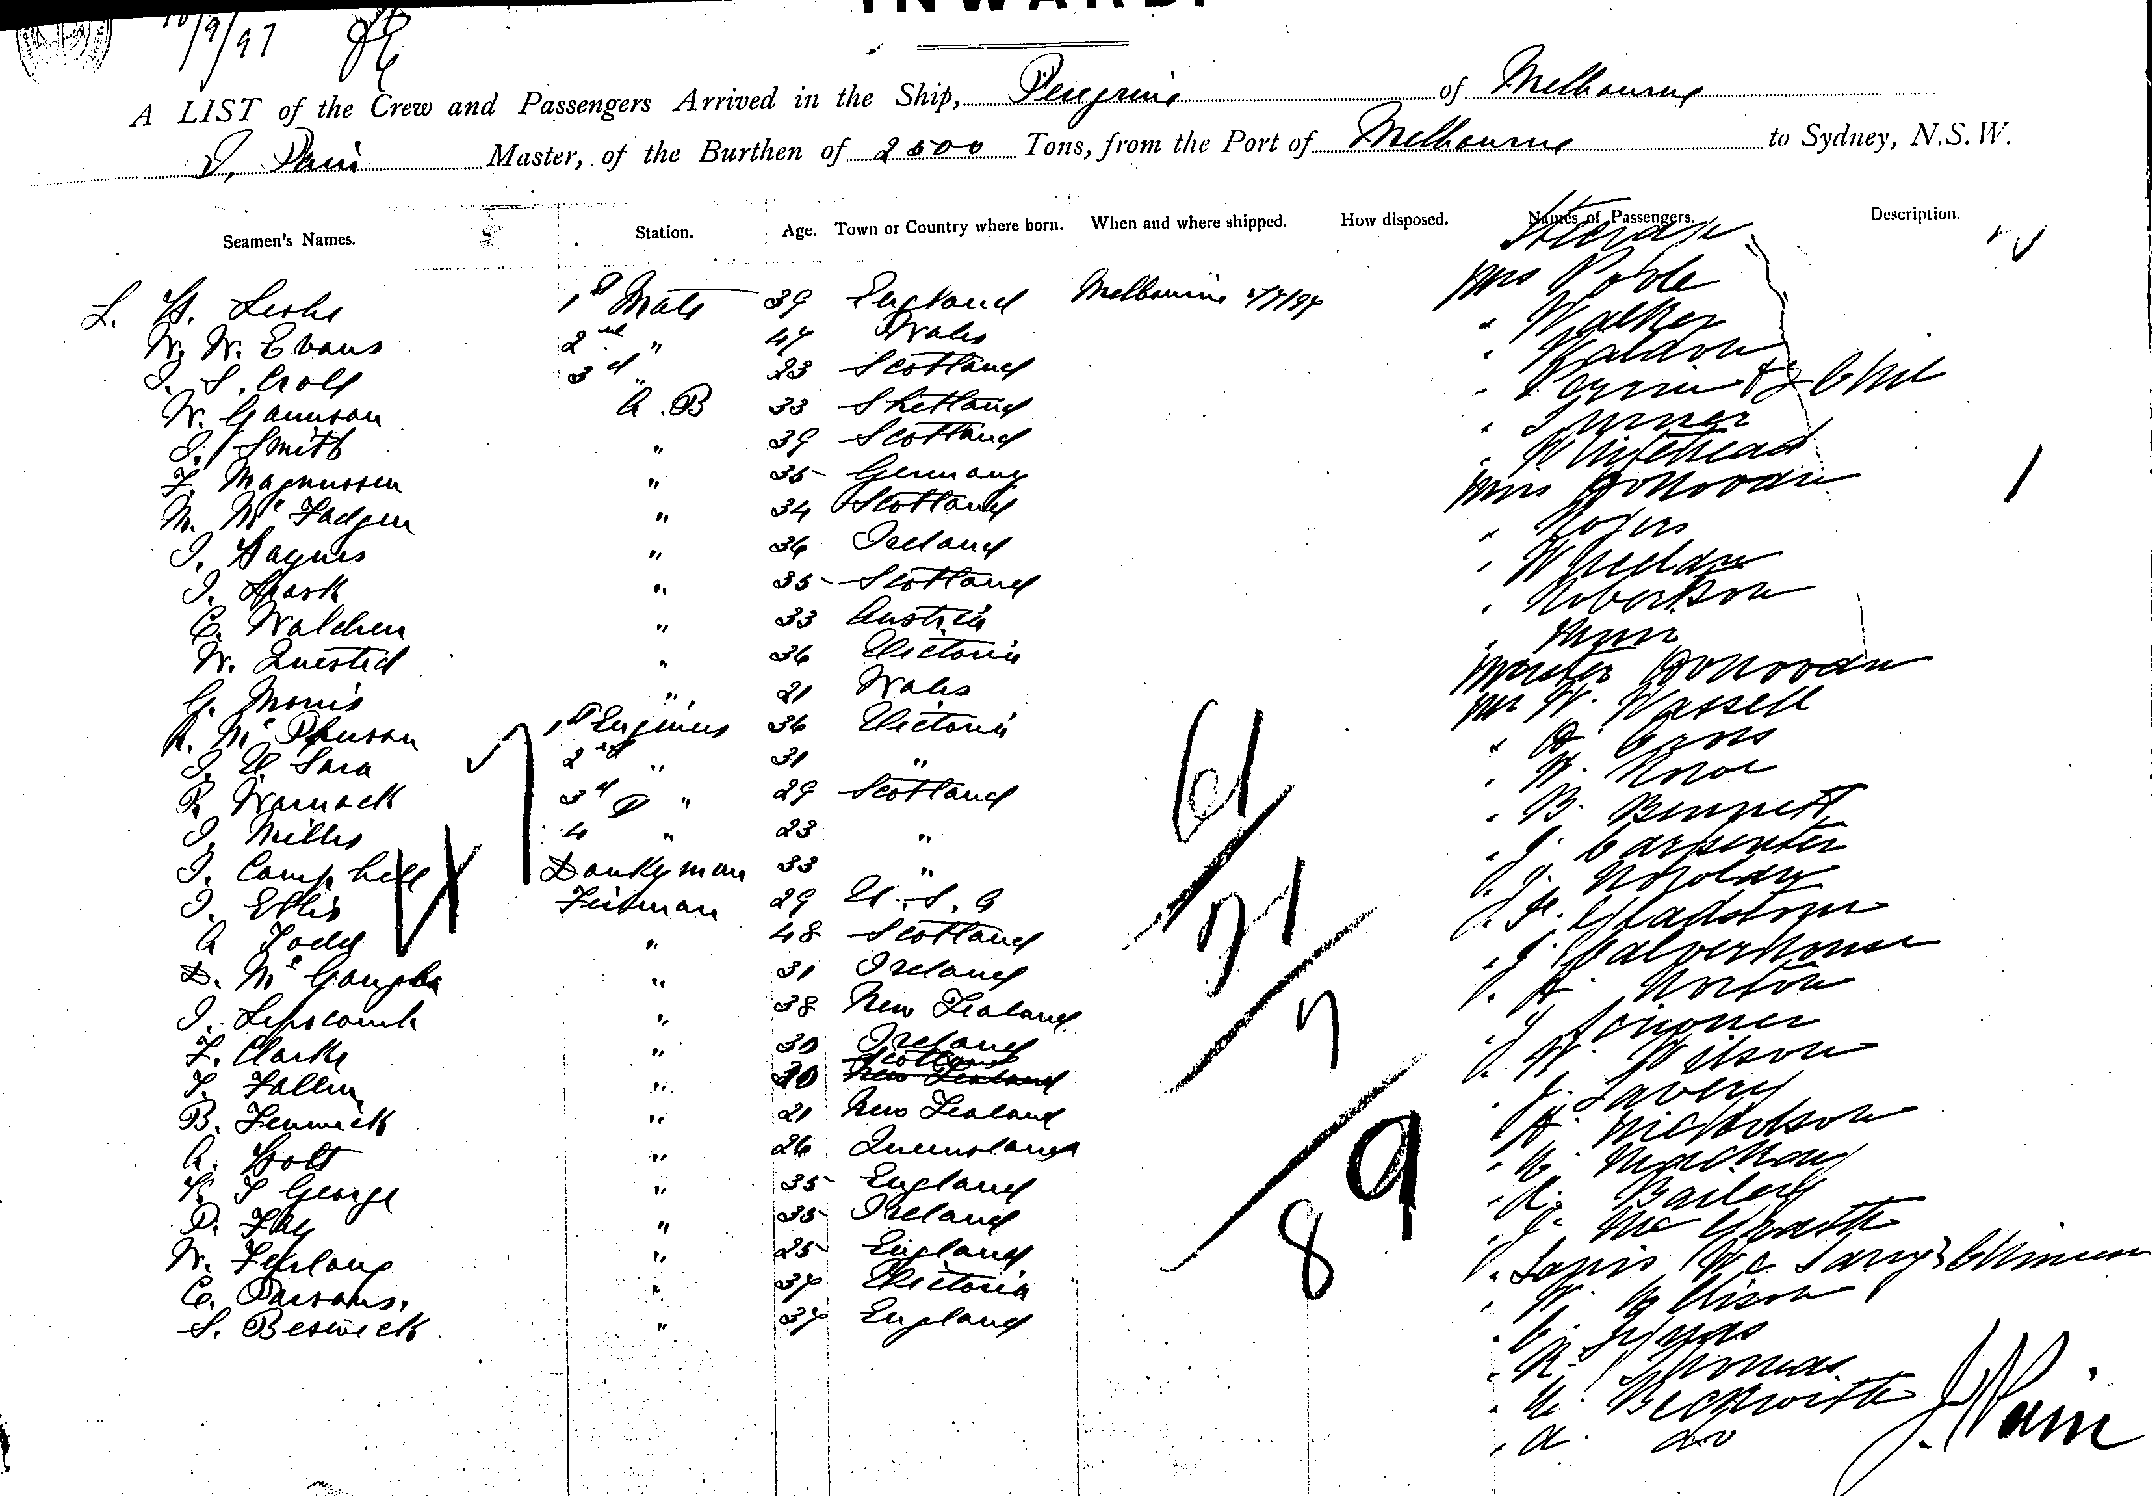 INWARD
/9/97
A LIST of the Crew and Passengers Arrived in the Ship, Peregrine of Melbourne
J. Pain Master, of the Burthen of 2500 Tons, from the Port of Melbourne to Sydney, N.S.W.
Seamen's Names. Station. Age. Town or Country where born. When and where shipped. How disposed. Names of Passengers. Description.
Steerage
L. H. Leslie 1st Mate 39 England Melbourne Mrs Poole
W. W. Evans 2nd " 47 Wales " Walker
J. S. Croll 3rd " 23 Scotland " Waldon
W. Gaunson A.B 33 Shetland
J. Smith " 39 Scotland " Turner
F. Magnussen " 35 Germany " Whitehead
M. McFadgen " 34 Scotland Miss Donovan
J. Haynes " 36 Ireland " Rogers
J. Spark " 35 Scotland " Whelan
C. Walchen " 33 Austria " Robertson
W. Quested " 36 Victoria
G. Morris " 21 Wales Master Donovan
R. McPherson 1st Engineer 36 Victoria Mr W. Wassell
J. V. Sara 2nd " 31 "
R. Warnock 3rd " 29 Scotland " W. Rowe
J. Millis 4 " 23 " " B. Bennett
J. Campbell Donkeyman 33 " " J. Carpenter
J. Ellis Fireman 29 U.S.A
A Todd " 48 Scotland " Gladstone
D. McGough " 31 Ireland " J. Calverhouse
J. Lipscomb " 38 New Zealand " H. Norton
F. Clarke " 30 Ireland
Scotland
T. Fallen " 20 New Zealand " W. Wilson
B. Fenwick " 21 New Zealand " J. Lavery
A. Holt " 26 Queensland " H. Nicholson
F. J George " 35 England " Mackay
P. Fay " 35 Ireland " Bailey
W. Furlong " 25 England " J. McGrath
C. Parsons. " 37 Victoria
S. Beswick " 37 England " W. Ellison
" Thomas
" Beckworth
" A. do
61
21
7
89
J. Pain